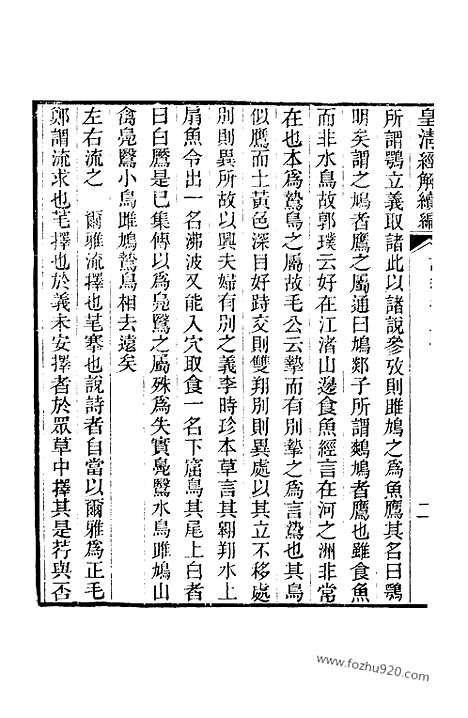 皇清經解續編
二
所謂鶚立義取諸此以諸說參攷則雎鳩之為魚鷹其名曰鶚
明矣謂之鳩者鷹之屬通曰鳩郯子所謂鷞鳩者鷹也雖食魚
而非水鳥故郭璞云好在江渚山邊食魚經言在河之洲非常
在也本為鷙鳥之屬故毛公云摯而有別摯之為言鷙也其鳥
似鷹而土黃色深目好跱交則雙翔別則異處以其立不移處
別則異所故以興夫婦有別之義李時珍本草言其翱翔水上
扇魚令出一名沸波又能入穴取食一名下窟鳥其尾上白者
曰白鷢是已集傳以為鳧鷖之屬殊為失實鳧鷖水鳥雎鳩山
禽鳧鷖小鳥雎鳩鷙鳥相去遠矣
左右流之 爾雅流擇也芼搴也說詩者自當以爾雅為正毛
鄭謂流求也芼擇也於義未安擇者於眾草中擇其是荇與否
www.fozhu920.com